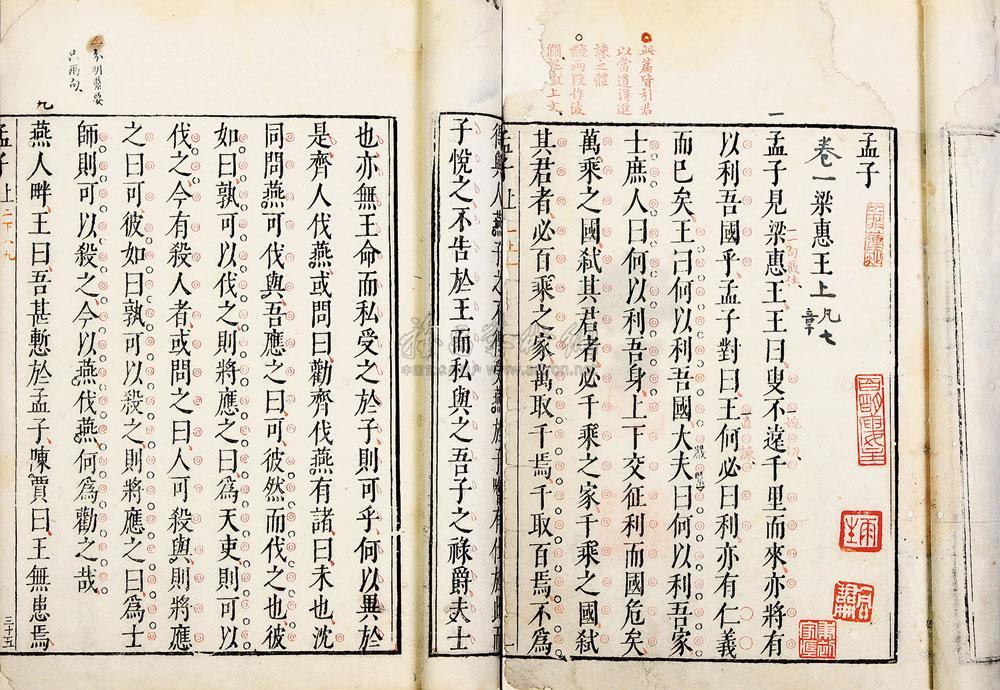 孟子
卷一梁惠王上 凡七章
此篇皆引君
以當道得進
諫之體
一
孟子見梁惠王王曰叟不遠千里而來亦將有
以利吾國乎孟子對曰王何必曰利亦有仁義
而已矣王曰何以利吾國大夫曰何以利吾家
士庶人曰何以利吾身上下交征利而國危矣
萬乘之國弒其君者必千乘之家千乘之國弒
其君者必百乘之家萬取千焉千取百焉不為
孟子上 一上一
子悅之不告於王而私與之吾子之祿爵夫士
也亦無王命而私受之於子則可乎何以異於
是齊人伐燕或問曰勸齊伐燕有諸曰未也沈
同問燕可伐與吾應之曰可彼然而伐之也彼
如曰孰可以伐之則將應之曰為天吏則可以
伐之今有殺人者或問之曰人可殺與則將應
之曰可彼如曰孰可以殺之則將應之曰為士
師則可以殺之今以燕伐燕何為勸之哉
九
燕人畔王曰吾甚慙於孟子陳賈曰王無患焉
孟子上 二下八九 三十五